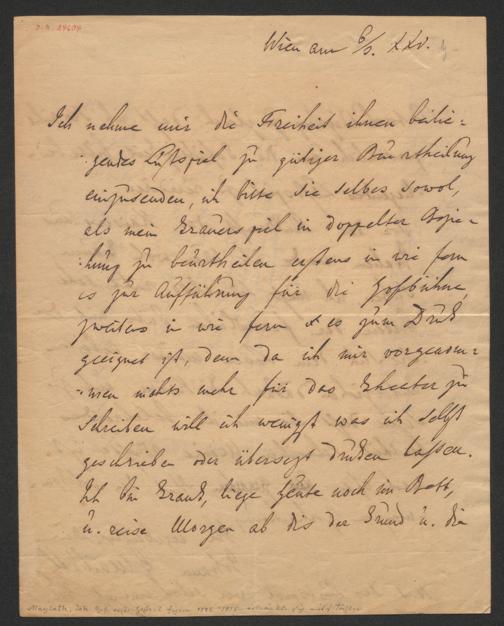 Wien am 6/3. XXV.
Ich nehme mir die Freiheit ihnen beilie=
gendes Lustspiel zu gütiger Beurtheilung
einzusenden, ich bitte sie selbes sowol,
als mein Trauerspiel in doppelter Bezie=
hung zu beurtheilen erstens in wie fern
es zur Aufführung für die Hofbühne,
zweitens in wie fern es zum Druk
geeignet ist, denn da ich mir vorgenom=
men nichts mehr für das Theater zu
schreiben will ich wenigst was ich selbst
geschrieben oder übersezt druken lassen.
Ich bin krank, liege heute noch im Bett,
u. reise Morgen ab dis der Grund u. die